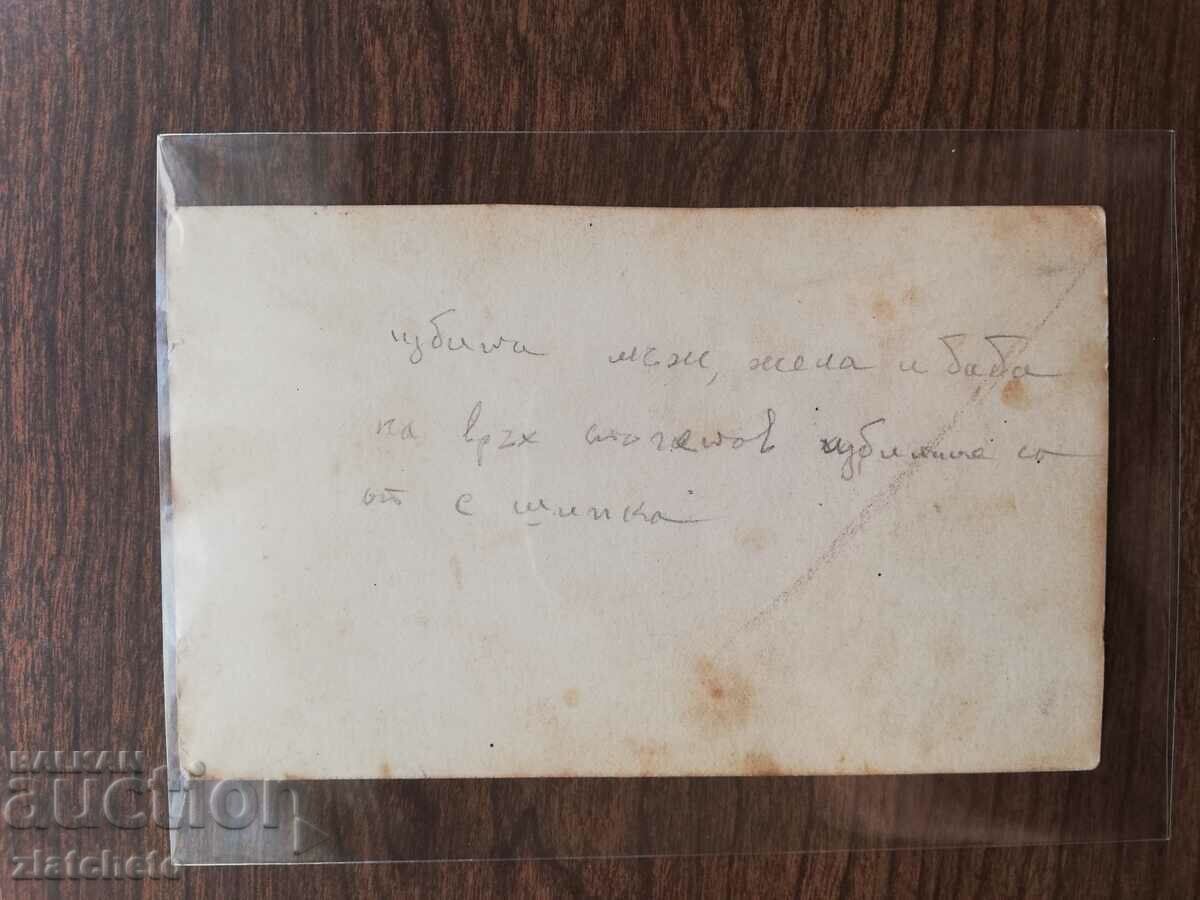 избити мъж, жена и баба
на връх столетов избити са
от с шипка
BALKAN
auction
zlatcheto